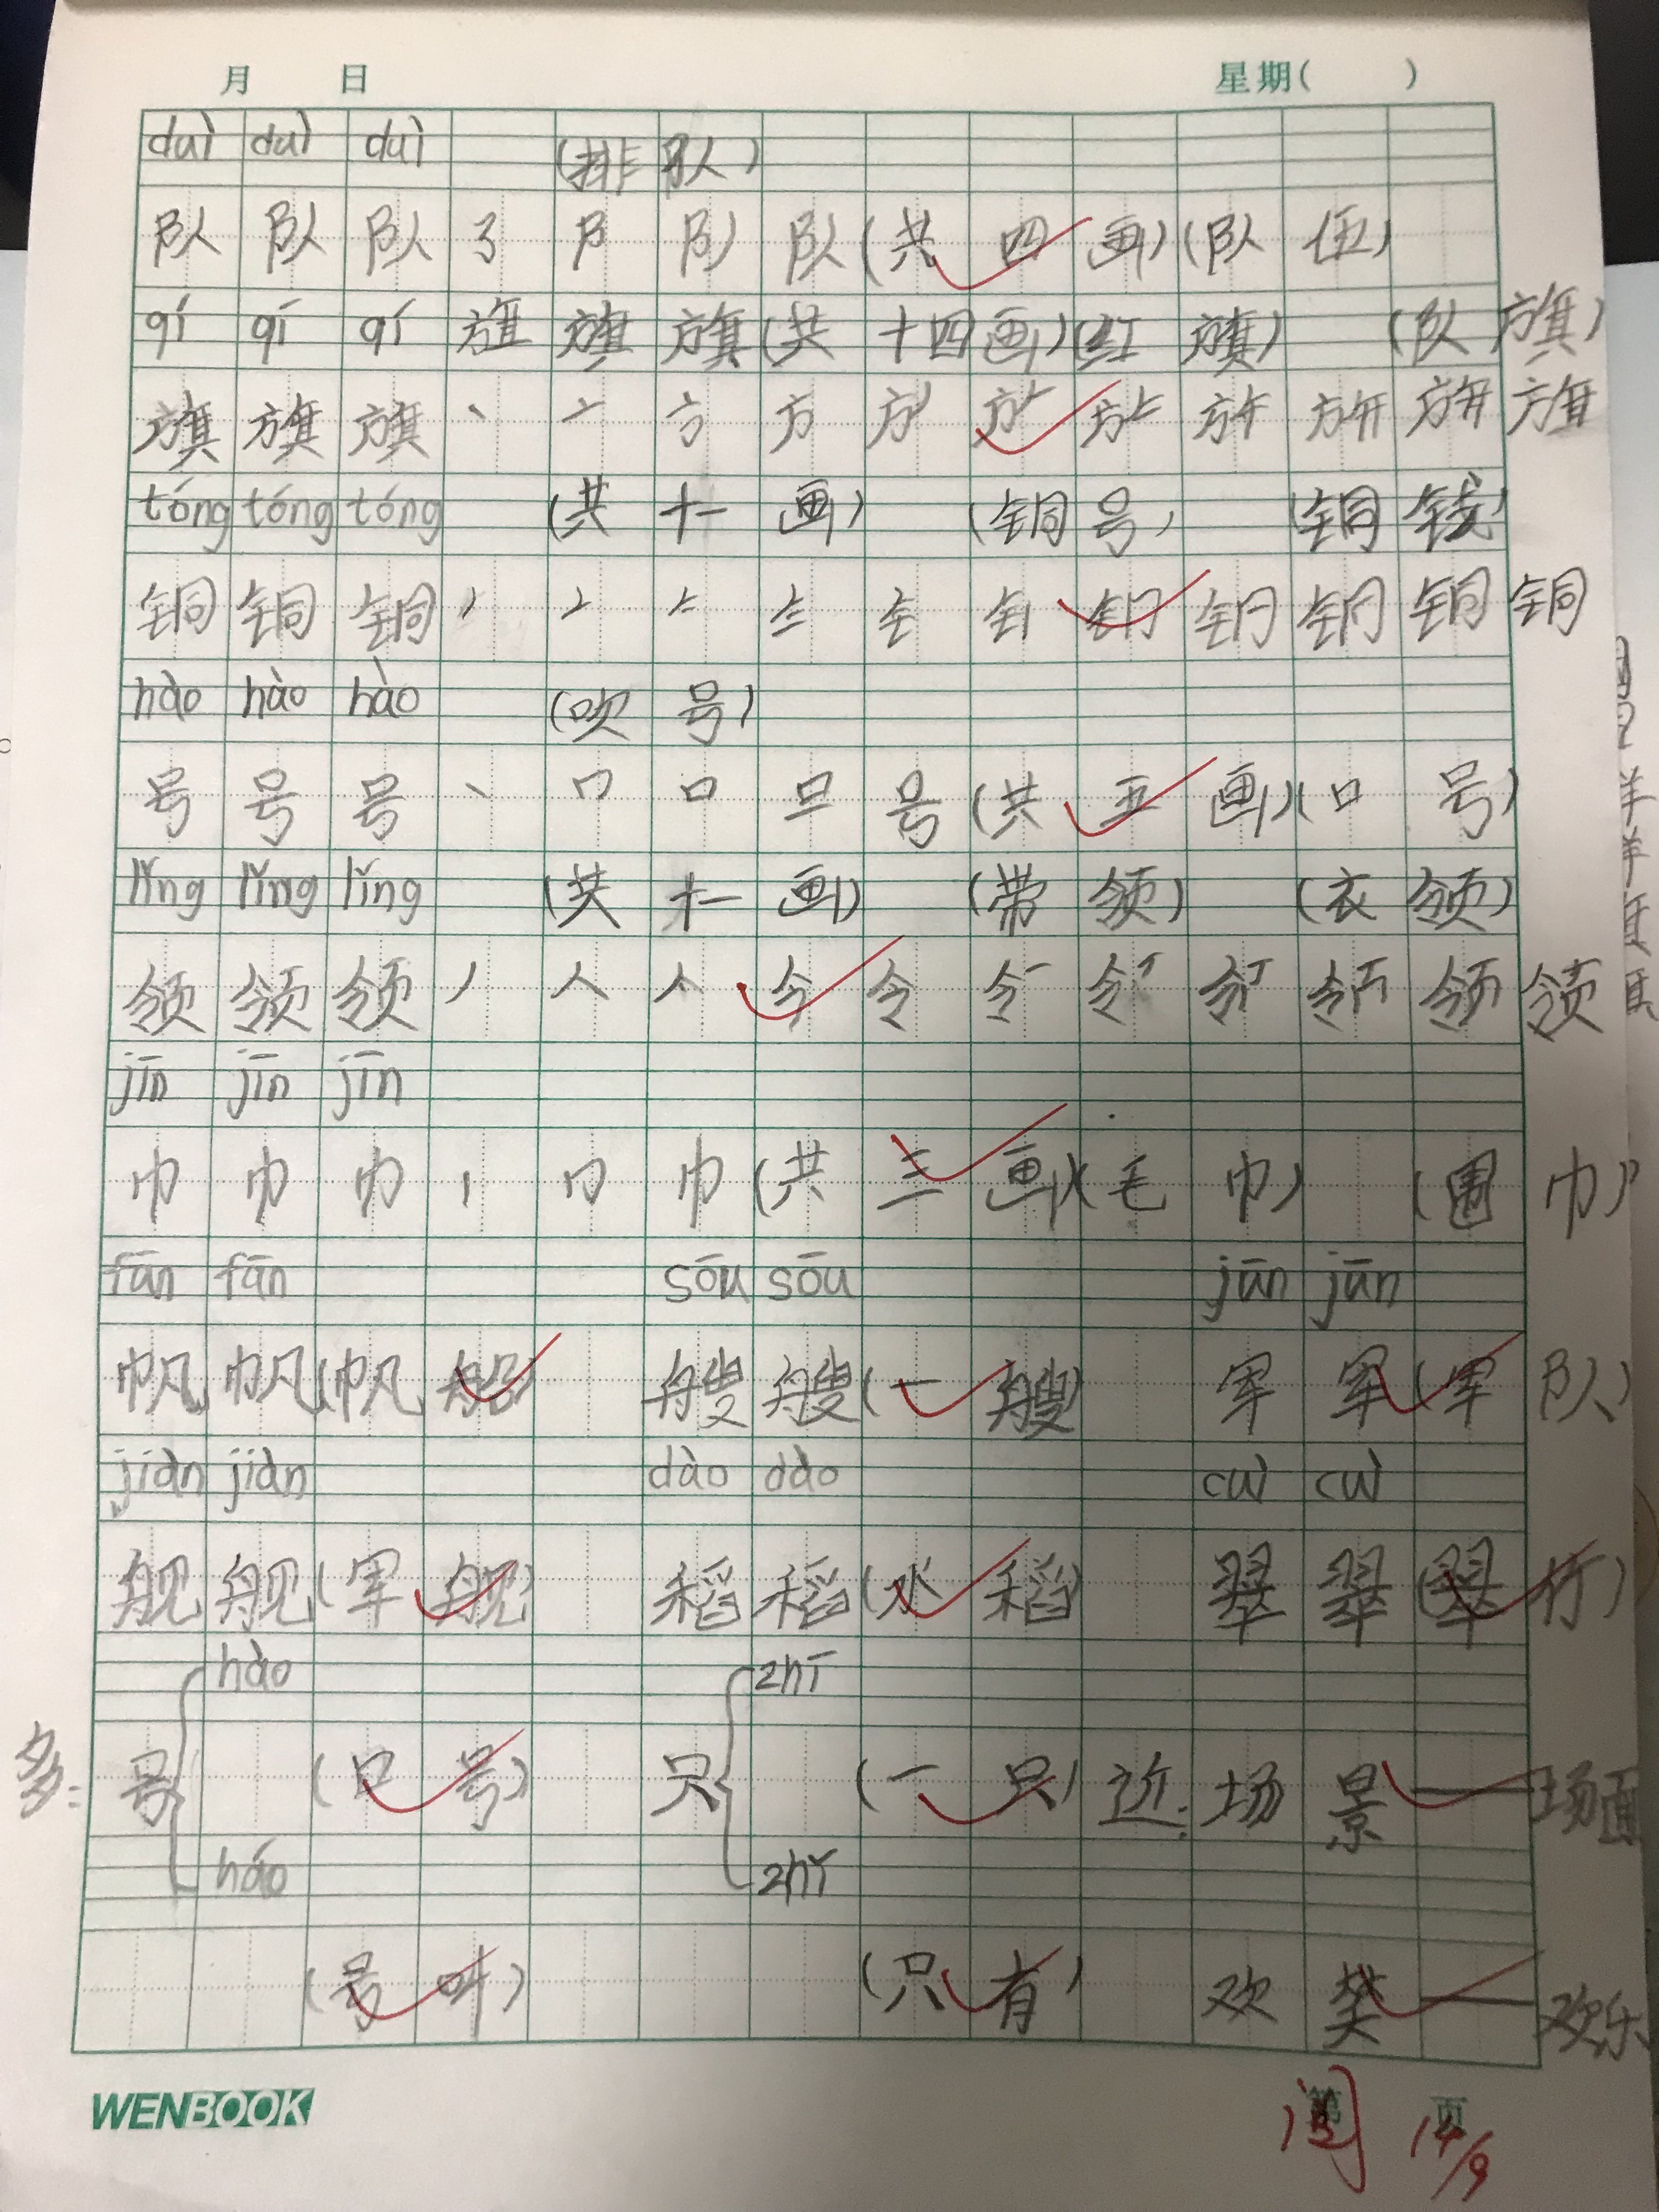 月 日 星期( )
duì duì duì (排队)
队 队 队 (共四画)(队伍)
qí qí qí 旗 旗 (共十四画)(红旗) (队旗)
旗 旗 旗 丶 亠 方 方
tóng tóng tóng (共十一画) (铜号) (铜钱)
铜 铜 铜 铜 铜
hào hào hào (吹号)
号 号 号 丶 口 口 号 (共五画)(口号)
lǐng lǐng lǐng (共十一画) (带领) (衣领)
领 领 领 丿 人 今 令 领 领
jīn jīn jīn
巾 巾 巾 丨 冂 巾 (共三画)(毛巾) (围巾)
fān fān sōu sōu jūn jūn
帆 帆 (帆船) 艘 艘 (一艘) 军 军 (军队)
jiàn jiàn dào dào cuì cuì
舰 舰 (军舰) 稻 稻 (水稻) 翠 翠 (翠竹)
hào zhī
多: 号 (口号) 只 (一只) 近: 场景——场面
háo zhǐ
(号叫) (只有) 欢笑——欢乐
WENBOOK 第 页
阅 14/9